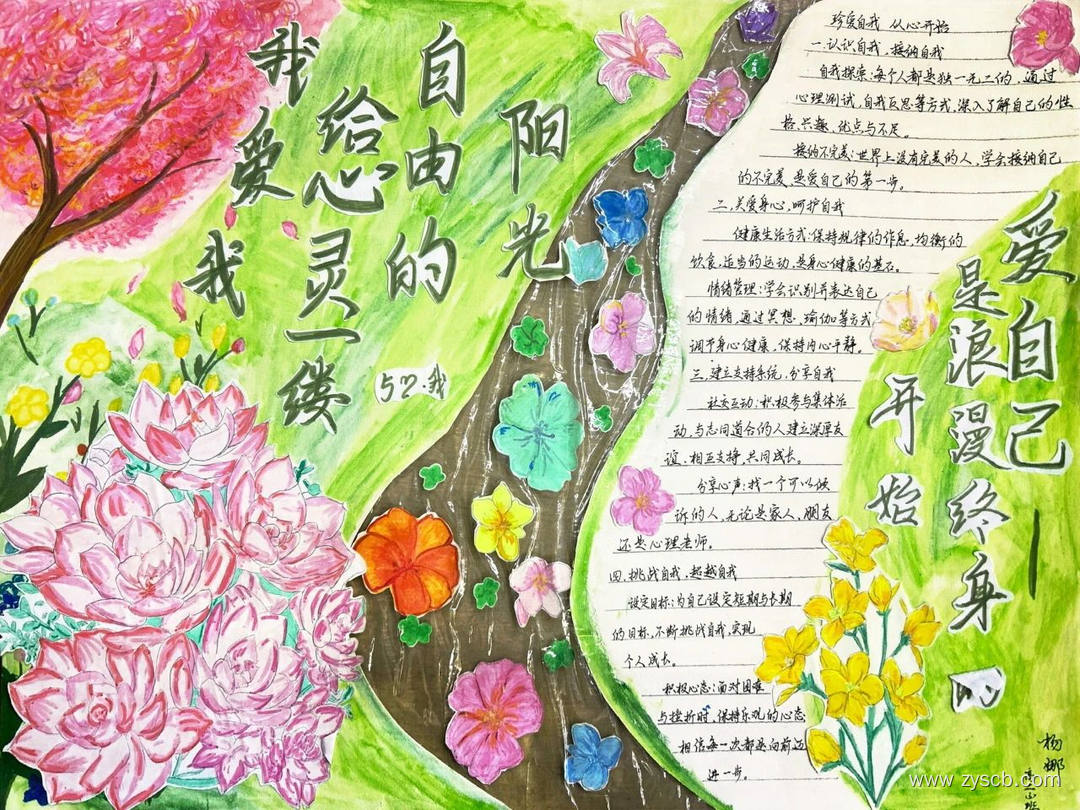 我爱我
给心灵一缕
自由的
阳光
5·2·我
珍爱自我 从心开始
一.认识自我,接纳自我
自我探索:每个人都是独一无二的,通过
心理测试,自我反思等方式,深入了解自己的性
格、兴趣、优点与不足。
接纳不完美:世界上没有完美的人,学会接纳自己
的不完美,是爱自己的第一步。
二.关爱身心,呵护自我
健康生活方式:保持规律的作息,均衡的
饮食,适当的运动,是身心健康的基石。
情绪管理:学会识别并表达自己
的情绪,通过冥想、瑜伽等方式
调节身心健康,保持内心平静。
三.建立支持系统,分享自我
社交互动:积极参与集体活
动,与志同道合的人建立深厚友
谊,相互支持,共同成长。
分享心声:找一个可以倾
诉的人,无论是家人,朋友
还是心理老师。
四.挑战自我,超越自我
设定目标:为自己设定短期与长期
的目标,不断挑战自我,实现
个人成长。
积极心态:面对困难
与挫折时,保持乐观的心态
相信每一次都是向前迈
进一步。
爱自己——
是浪漫终身的
开始
杨娜
www.zyscb.com